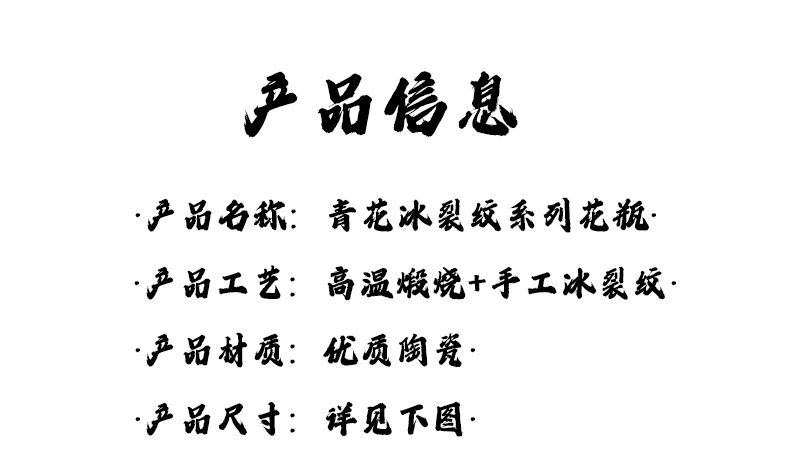 产品信息
·产品名称：青花冰裂纹系列花瓶·
·产品工艺：高温煅烧+手工冰裂纹·
·产品材质：优质陶瓷·
·产品尺寸：详见下图·